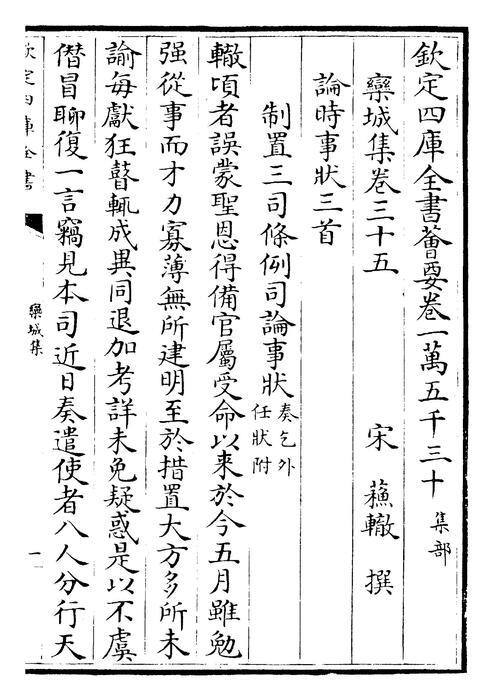 欽定四庫全書薈要卷一萬五千三十 集部
欒城集卷三十五 宋 蘓轍 撰
論時事狀三首
制置三司條例司論事狀 奏乞外任狀附
轍頃者誤蒙聖恩得備官屬受命以来於今五月雖勉
强從事而才力寡薄無所建明至於措置大方多所未
諭每獻狂瞽輒成異同退加考詳未免疑惑是以不虞
僣冒聊復一言竊見本司近日奏遣使者八人分行天
欽定四庫全書
欒城集
一